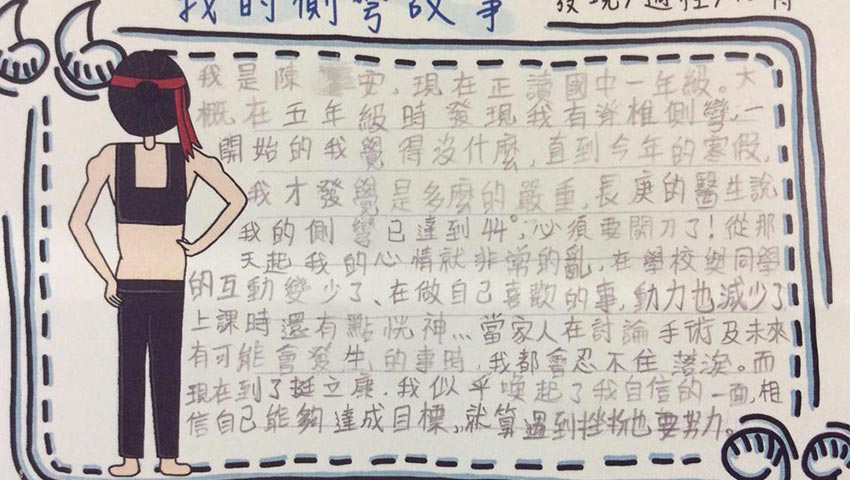 我的側彎故事
發現/過程/心得
我是陳 安，現在正讀國中一年級。大
概在五年級時發現我有脊椎側彎，一
開始的我覺得沒什麼，直到今年的寒假，
我才發覺是多麼的嚴重，長庚的醫生說
我的側彎已達到44°，必須要開刀了！從那
天起我的心情就非常的亂，在學校與同學
的互動變少了、在做自己喜歡的事，動力也減少了
上課時還有點恍神…當家人在討論手術及未來
有可能會發生的事時，我都會忍不住落淚。而
現在到了挺立康，我似乎喚起了我自信的一面，相
信自己能夠達成目標，就算遇到挫折也要努力。